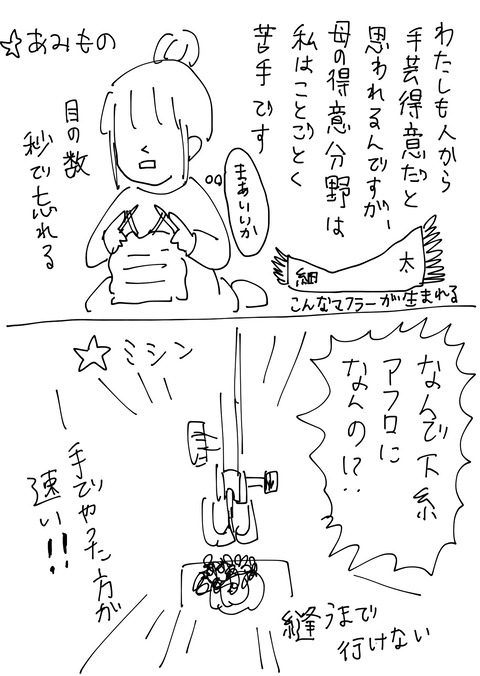 わたしも人から
手芸得意だと
思われるんですが、
母の得意分野は
私はことごとく
苦手です
☆あみもの
まあいいか
目の数
秒で忘れる
太
細
こんなマフラーが生まれる
☆ミシン
なんで下糸
アフロに
なんの!?
手でやった方が
速い!!
縫うまで
行けない